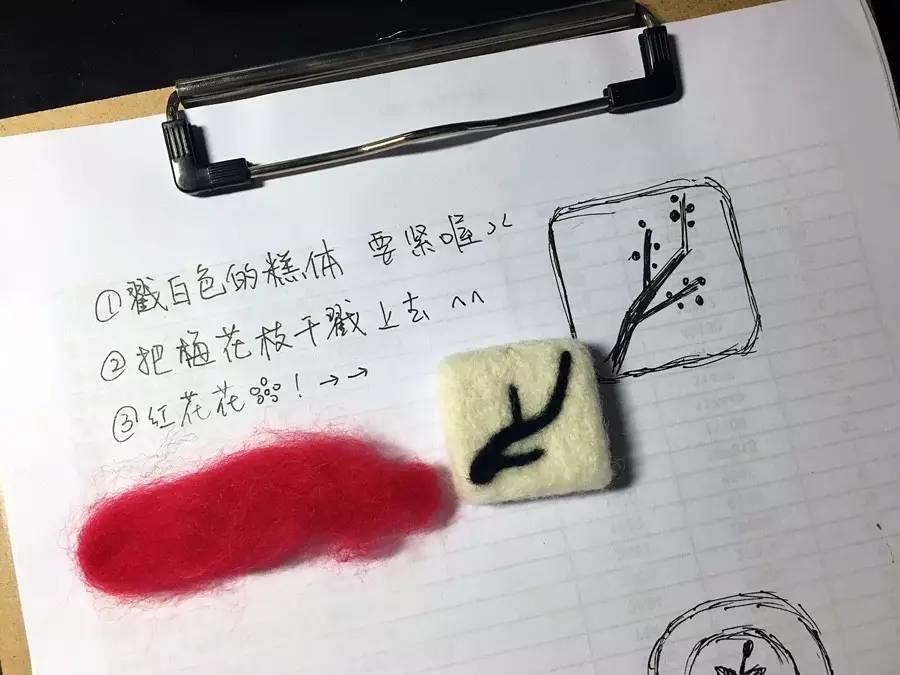 ①戳白色的糕体 要紧喔
②把梅花枝干戳上去 ^^
③红花花！→→